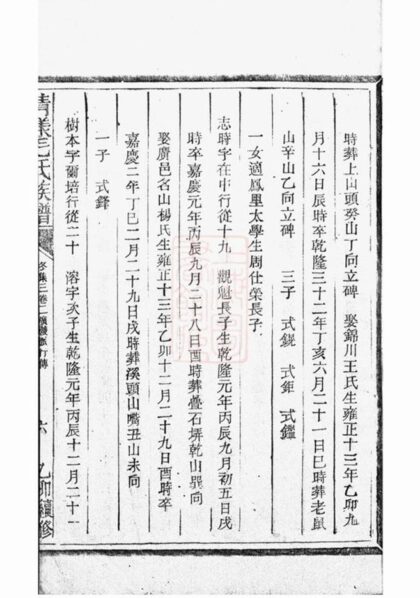 時葬上山頭癸山丁向立碑 娶錦川王氏生雍正十三年乙卯九
月十六日辰時卒乾隆三十二年丁亥六月二十一日巳時葬老鼠
山辛山乙向立碑 三子 式鋧 式鉅 式鑑
一女適鳳里太學生周仕榮長子
志時字在中行從十九 觀魁長子生乾隆元年丙辰九月初五日戌
時卒嘉慶元年丙辰九月二十八日酉時葬疊石垪乾山巽向
娶廣邑名山楊氏生雍正十三年乙卯十二月二十九日酉時卒
嘉慶二年丁巳二月二十九日戌時葬溪頭山嘴丑山未向
一子 式鐸
樹本字爾培行從二十 溶字次子生乾隆元年丙辰十二月二十一
清漾毛氏族譜
冬集三卷二
六
乙卯續修